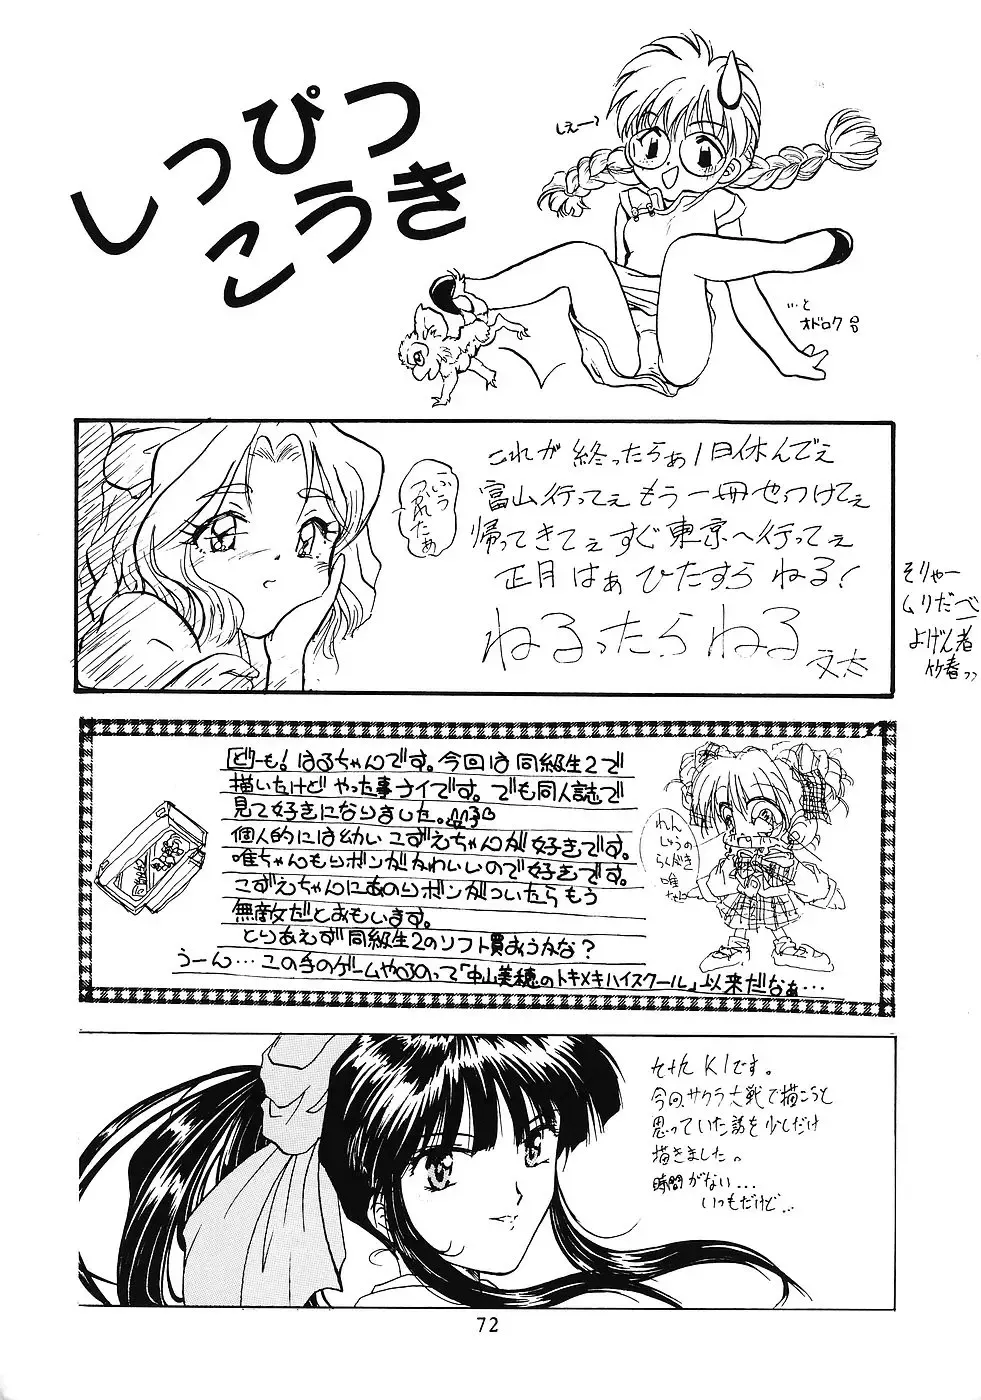 しっぴつ
こうき
しぇー?
…と
オドロク
これが 終ったらぁ1日休んでぇ
富山行ってぇ もう一冊やっつけてぇ
帰ってきてぇ すぐ東京へ行ってぇ
正月はぁ ひたすら ねる!
ねるったら ねる
文太
こいつ
つかれたぁ
そりゃー
ムリだべー
よげん者
竹春
どーも!はるちゃんです。今回は同級生2で
描いたけど やった事ナイです。でも同人誌で
見て好きになりました。
個人的には幼い こずえちゃんが好きです。
唯ちゃんもリボンがかわいいので好きです。
こずえちゃんにあのリボンがついたらもう
無敵だとおもいます。
とりあえず同級生2のソフト買おうかな?
うーん…この手のゲームやるのって「中山美穂のトキメキハイスクール」以来だなぁ…
れん
しゅうの
らくがき
唯
ちゃん
K1です。
今回、サクラ大戦で描こうと
思っていた話を少しだけ
描きました。
時間がない…
いつもだけど…
72